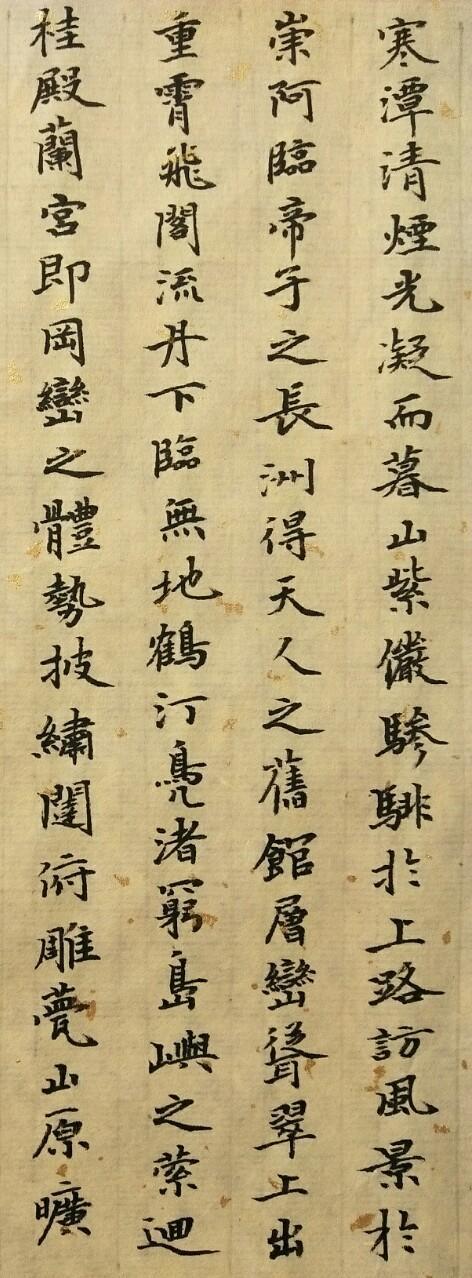 寒潭清煙光凝而暮山紫儼驂騑於上路訪風景於
崇阿臨帝子之長洲得天人之舊館層巒聳翠上出
重霄飛閣流丹下臨無地鶴汀鳧渚窮島嶼之縈迴
桂殿蘭宮即岡巒之體勢披繡闥俯雕甍山原曠